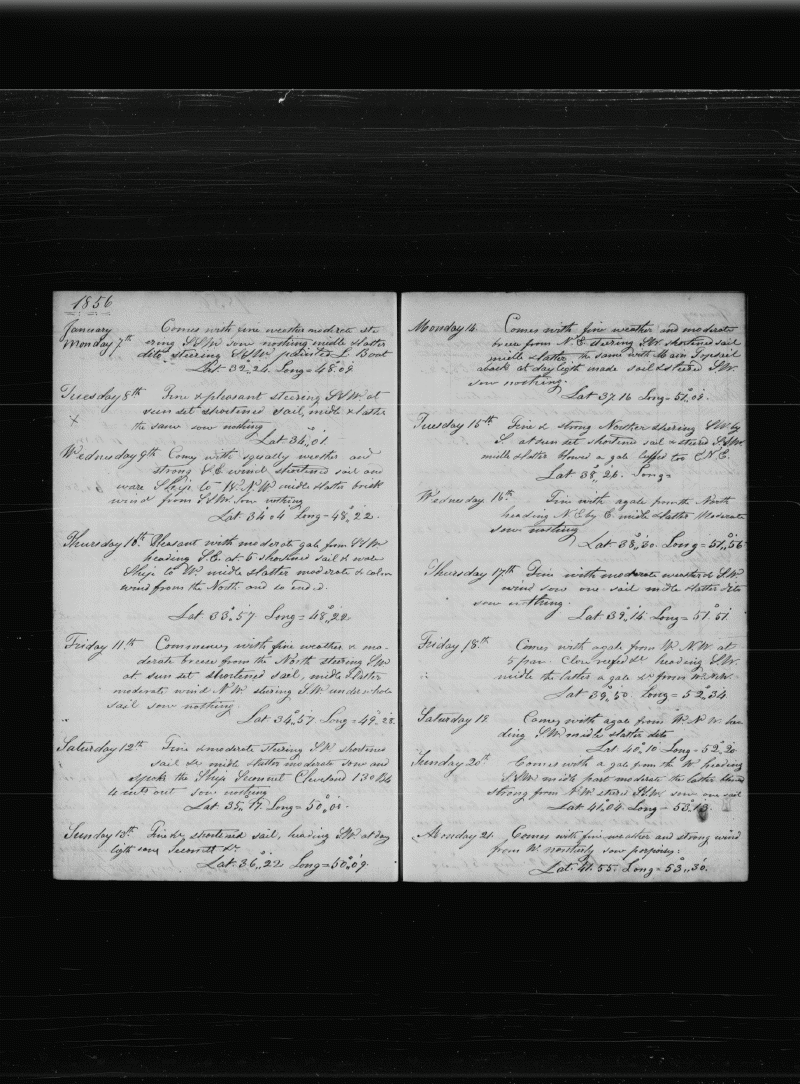 1856
January
Monday 7th Comes with fine weather moderate ste
ering SSW sow nothing middle & latter
ditto steering SSW painted L. Boat
Lat 32,,24. Long = 48,,09
Tuesday 8th Fine & pleasant steering SSW. at
x sun set shortened sail, midle & latter
the same sow nothing
Lat 34,,01.
Wednesday 9th Comes with squally weather and
strong wind shortened sail and
ware Ship to W.N.W midle & latter brisk
wind from SSW. Sow nothing
Lat. 34,,04. Long = 48,,22.
Thursday 10th Pleasant with moderate gale from SSW
heading S.E. at 5 shortened sail & ware
Ship to W. midle & latter moderate & calm
wind from the North and so ends.
Lat 33,,57 Long = 48,,22
Friday 11th Commences with fine weather & mo-
derate breeze from the North steering SW
at sun set shortened sail, midle & latter
moderate wind N.W. steering SW under whole
sail sow nothing
Lat 34,,57. Long = 49,,28.
Saturday 12th Fine & moderate steering SW shortened
sail & midle & latter moderate sow and
speck the Ship Seconet Cleveland 130 bls
months out sow nothing
Lat 35,,17. Long = 50,,01.
Sunday 13th Fine & shortened sail, heading SW. at day
ligth sow Seconett &c
Lat. 36,,22 Long = 50,,09.
Monday 14 Comes with fine weather and moderate
breeze from N.E. steering SW shortened sail
midle & latter the same with Main Topsail
aback at day ligth made sail & steered SW.
sow nothing.
Lat 37 16 Long = 51,,08.
Tuesday 15th Fine & strong Norther steering SW by
S. at sun set shortened sail & steered SSW.
midle & latter blowed a gale luffed too E.N.E.
Lat 38,,26. Long =
Wednesday 16th Fine with a gale from the North
heading N.E by E. midle & latter moderate
sow nothing
Lat. 38,,50. Long = 51,,56
Thursday 17th Fine with moderate weather & SW
wind sow one sail midle & latter ditto
sow nothing.
Lat 39,,14. Long = 51,,51.
Friday 18th Comes with a gale from W.N.W at
5 p.m. Close reefed &c heading SW.
midle the latter a gale &c from W.N.W.
Lat 39,,50. Long = 52,,34.
Saturday 18 Comes with a gale from W.N.W. hea
ding SW. midle & latter ditto
Lat 40,,10 Long = 52,,20
Sunday 20th Comes with a gale from the W. heading
SSW. midle part moderate the latter blowed
strong from N.W. steered SSW. sow one sail
Lat 41,,04. Long = 53,,13.
Monday 21. Comes with fine weather and strong wind
from W. northerly sow porpoises.
Lat. 41. 55. Long = 53,,30.